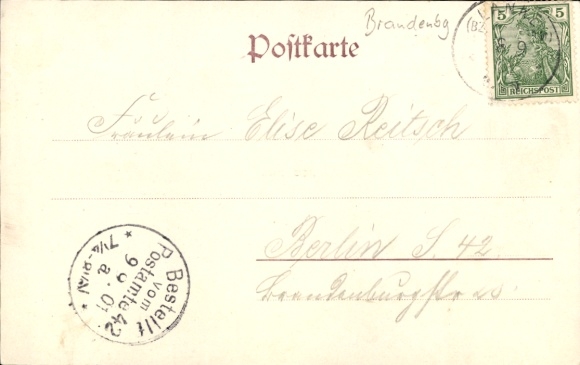 Brandenbg
Postkarte
5 5
REICHSPOST
Fräulein Elise Reitsch
Berlin S. 42
Brandenburgstr
Bestellt
vom
Postamte 42
9 9
a. 01